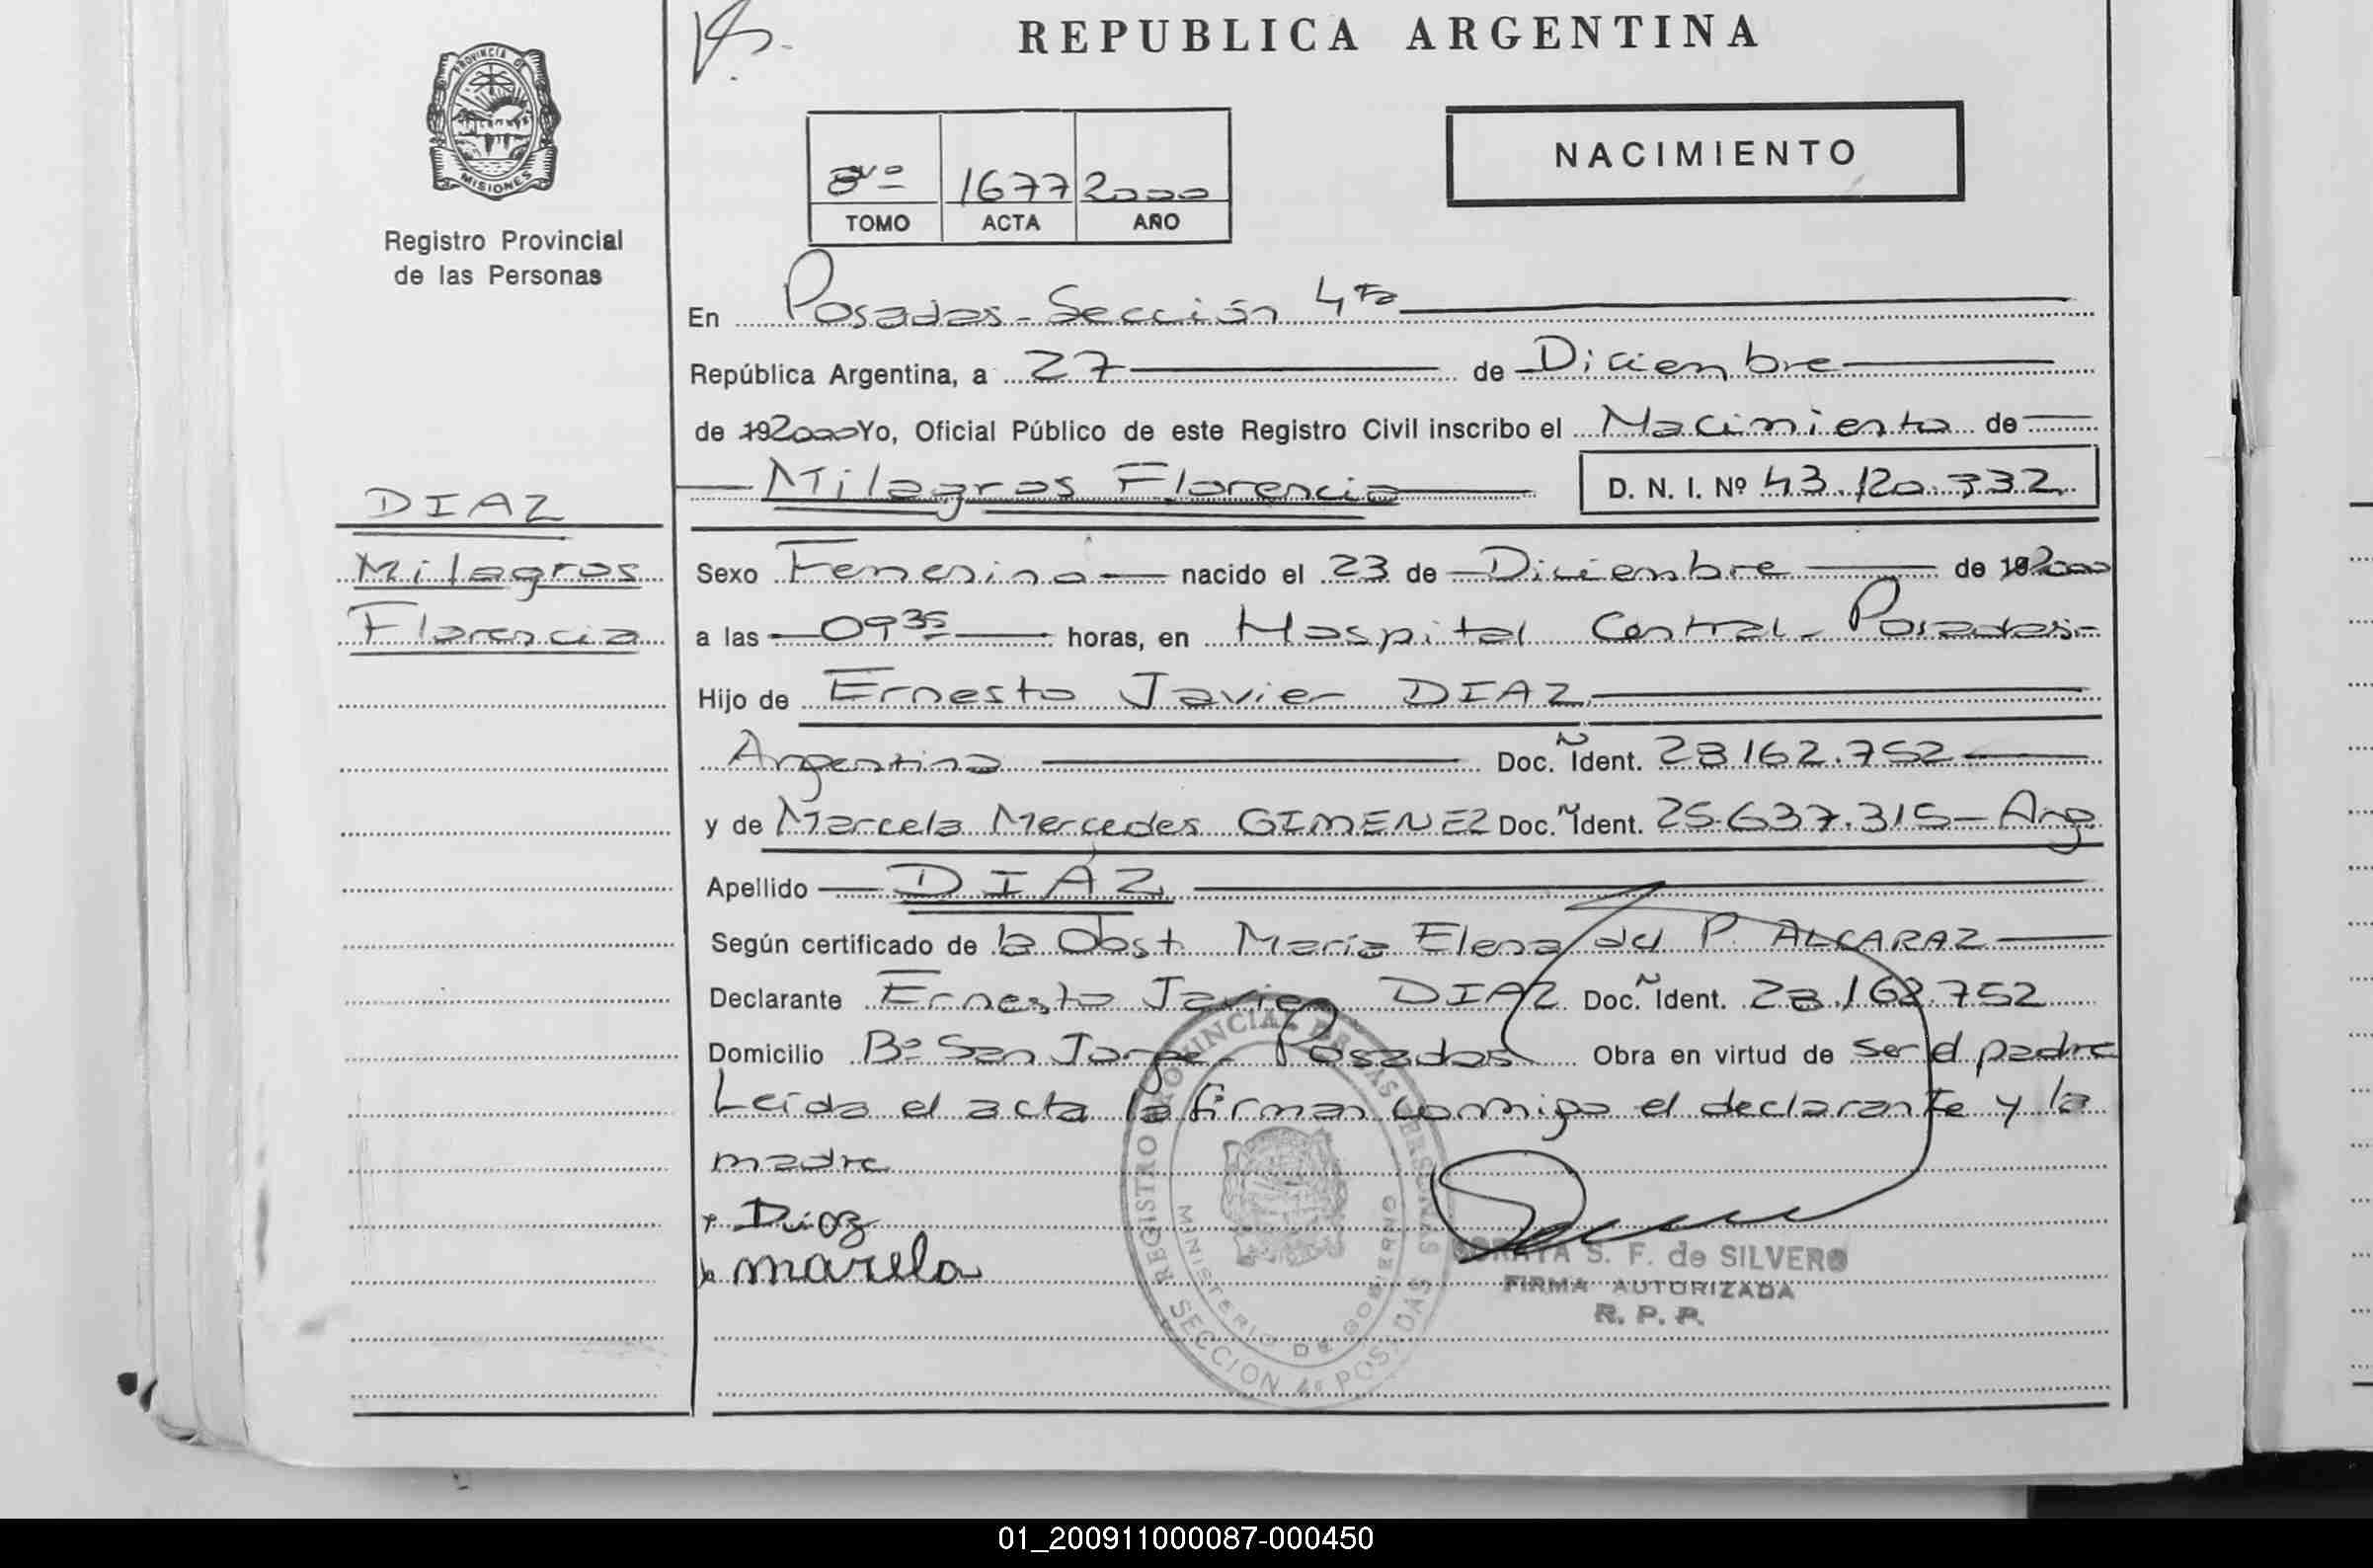 REPUBLICA ARGENTINA
PROVINCIA DE
MISIONES
Registro Provincial
de las Personas
8vo 1677 2000
TOMO ACTA AÑO
NACIMIENTO
En Posadas - Sección 4ta
República Argentina, a 27 de Diciembre
de 192000 Yo, Oficial Público de este Registro Civil inscribo el Nacimiento de
Milagros Florencia D. N. I. Nº 43.120.332
DIAZ
Milagros
Florencia
Sexo Femenino nacido el 23 de Diciembre de 192000
a las 09 35 horas, en Hospital Central - Posadas -
Hijo de Ernesto Javier DIAZ
Argentina Doc. Ident. 23.162.752
y de Marcela Mercedes GIMENEZ Doc. Ident. 25.637.315 - Arg.
Apellido DIAZ
Según certificado de la Obst. María Elena del P. ALCARAZ
Declarante Ernesto Javier DIAZ Doc. Ident. 23.162.752
Domicilio Bº San Jorge - Posadas Obra en virtud de ser el padre
Leída el acta la firman conmigo el declarante y la
madre
Diaz
marcela
REGISTRO PROVINCIAL DE LAS PERSONAS
MINISTERIO DE GOBIERNO
SECCION 4ª POSADAS
SORAYA S. F. de SILVERO
FIRMA AUTORIZADA
R. P. P.
01_200911000087-000450